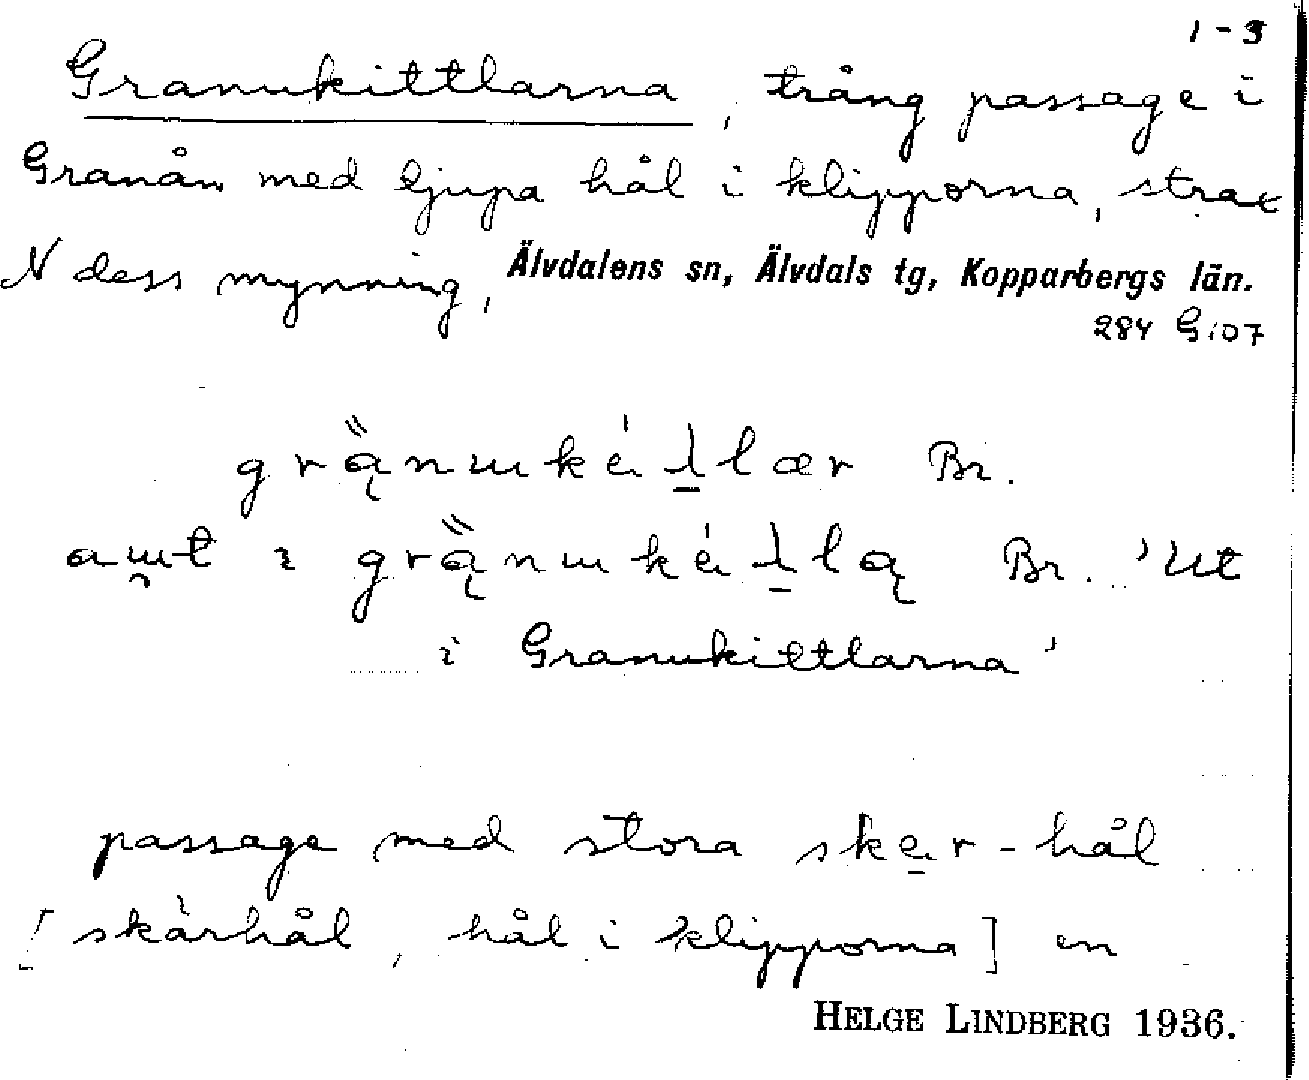 1-3
Granukittlarna, trång passage i
Granån med djupa hål i klipporna, strax
N dess mynning, Älvdalens sn, Älvdals tg, Kopparbergs län.
284 G:07
Br.
Br. 'Ut
i Granukittlarna'
passage med stora skær-hål
[skärhål, hål i klipporna] en
HELGE LINDBERG 1936.